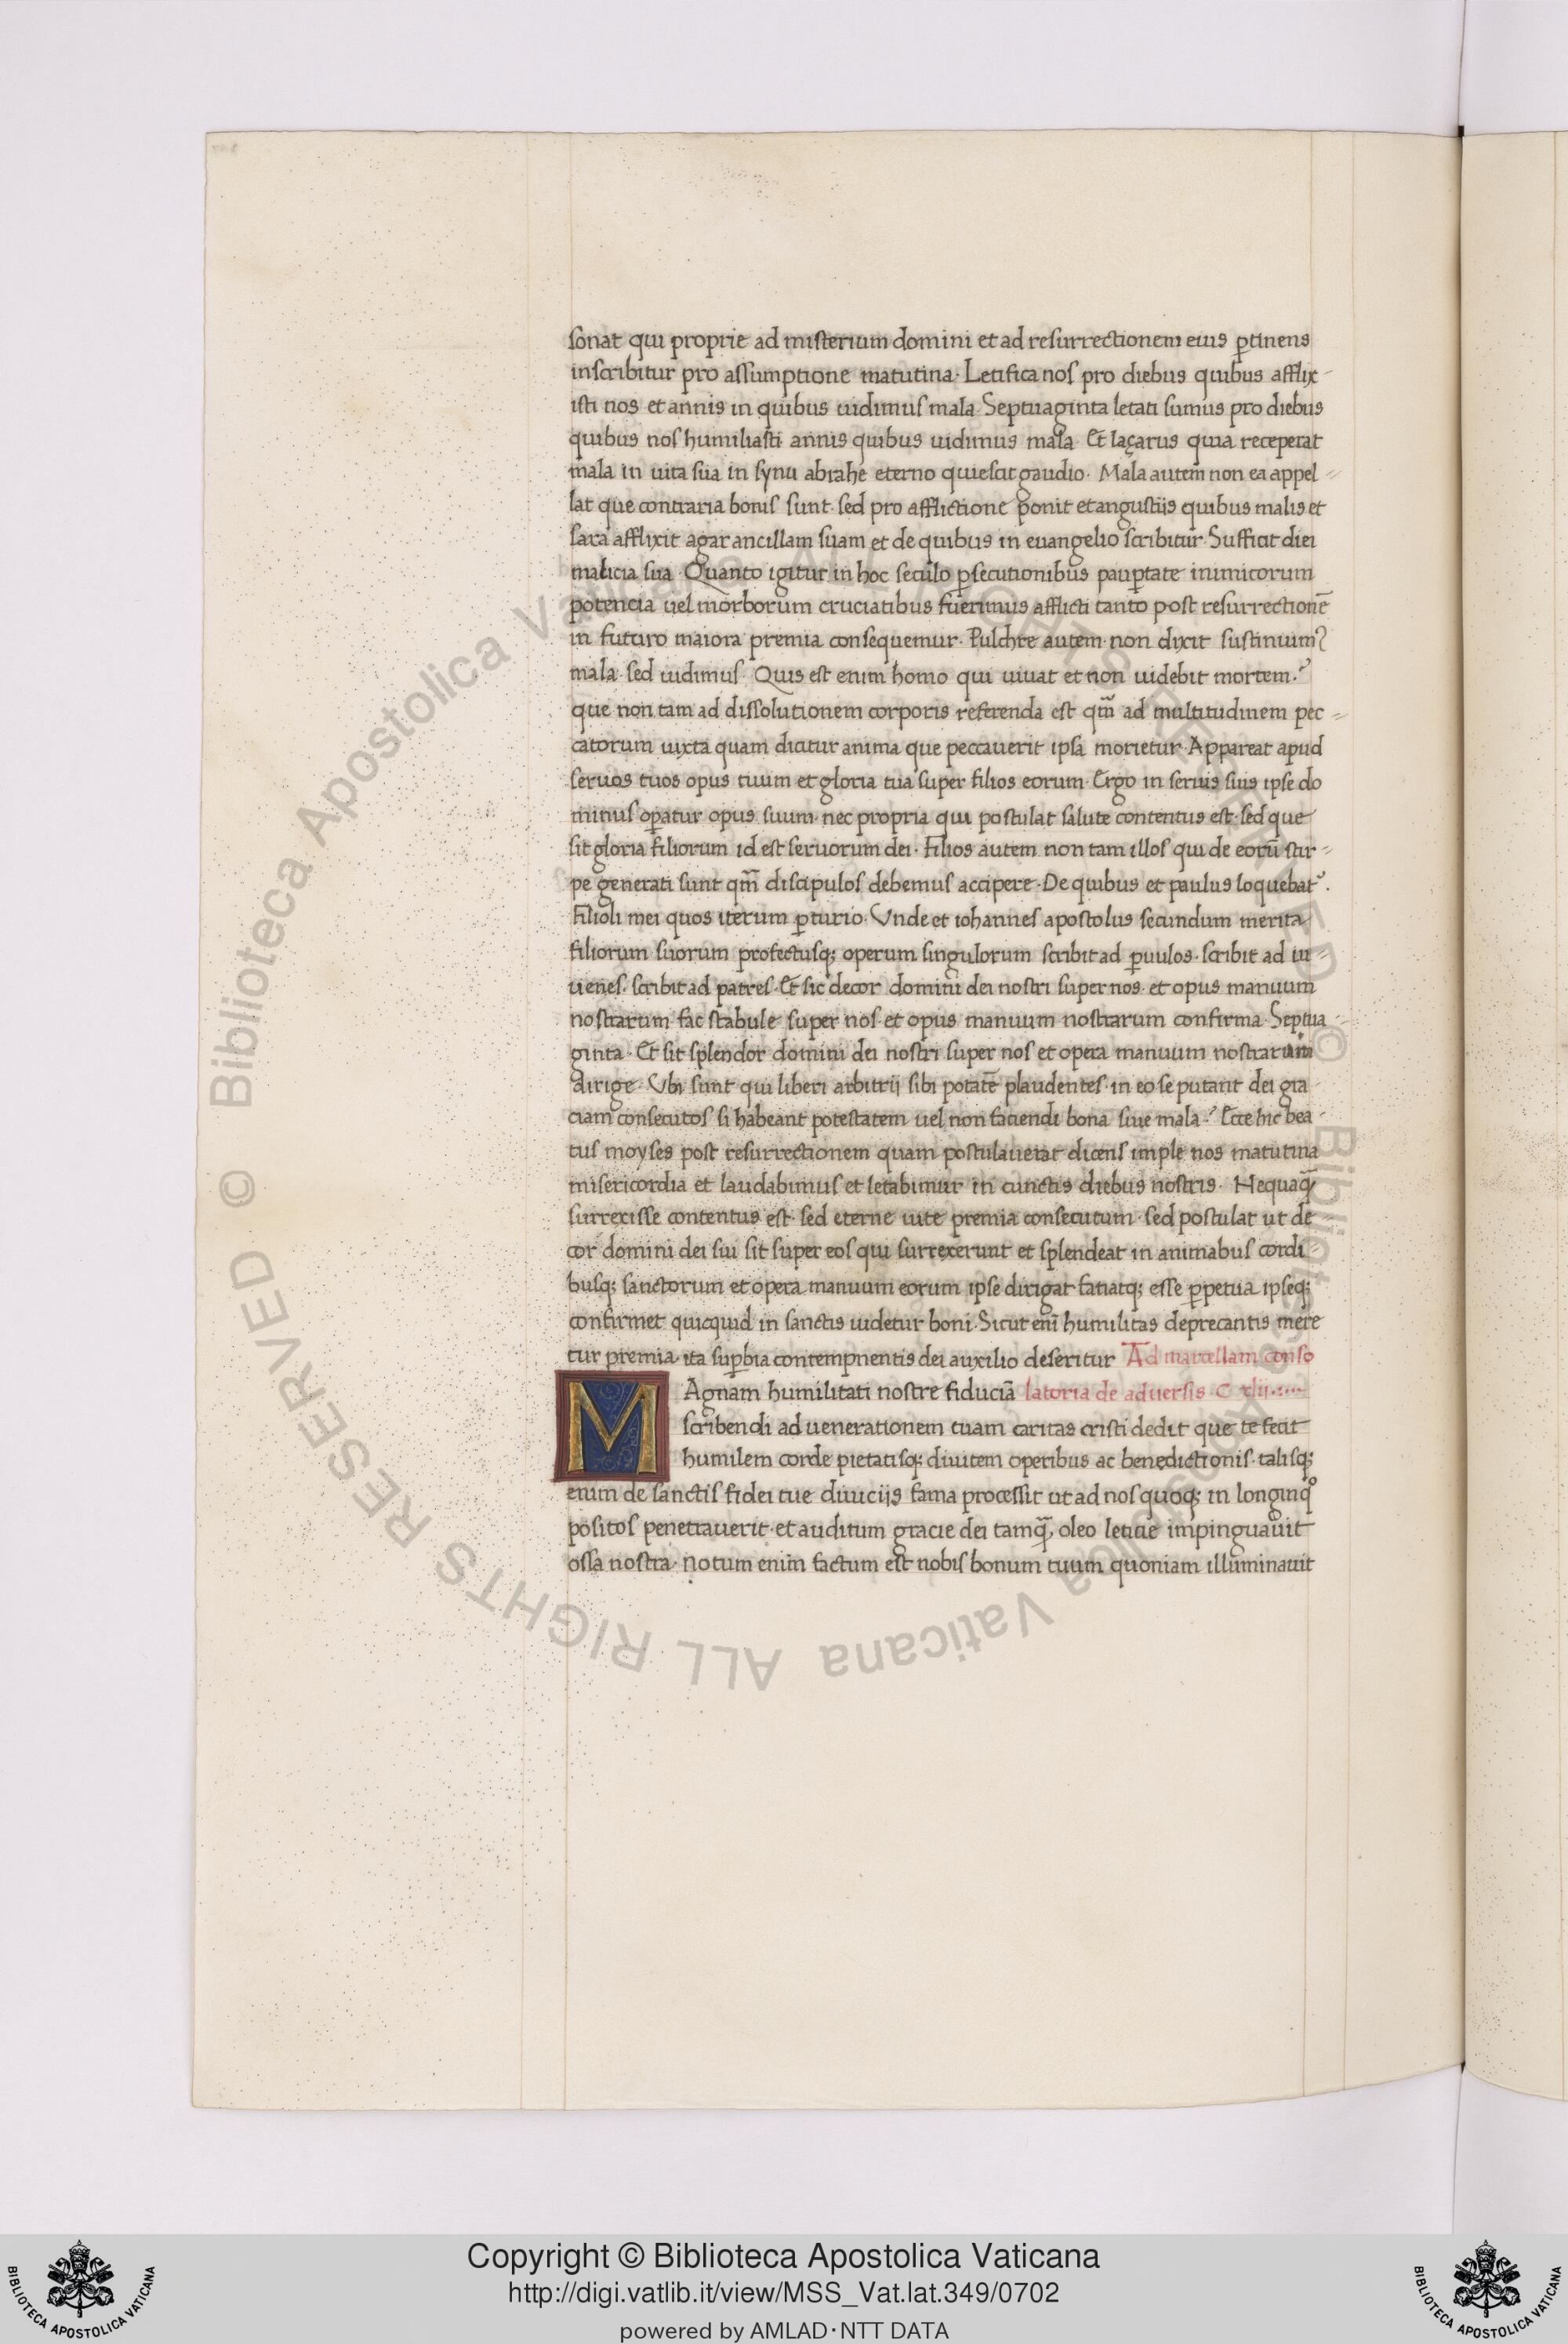 sonat qui proprie ad misterium domini et ad resurrectionem eius ꝑtinens
inscribitur pro assumptione matutina· Letifica nos pro diebus quibus afflix-
isti nos et annis in quibus uidimus mala· Septuaginta letati sumus pro diebus
quibus nos humiliasti annis quibus uidimus mala· Et laçarus quia receperat
mala in uita sua in synu abrahe eterno quiescit gaudio· Mala autem non ea appel-
lat que contraria bonis sunt· sed pro afflictione ponit et angustiis quibus malis et
sara afflixit agar ancillam suam et de quibus in euangelio scribitur· Sufficit diei
malicia sua· Quanto igitur in hoc seculo ꝑsecutionibus pauꝑtate inimicorum
potencia uel morborum cruciatibus fuerimus afflicti tanto post resurrectionē
in futuro maiora premia consequemur· Pulchre autem non dixit sustinuimꝰ
mala· sed uidimus· Quis est enim homo qui uiuat et non uidebit mortem·?
que non tam ad dissolutionem corporis referenda est qm̄ ad multitudinem pec-
catorum iuxta quam dicitur anima que peccauerit ipsa morietur· Appareat apud
seruos tuos opus tuum et gloria tua super filios eorum· Ergo in seruis suis ipse do
minus oꝑatur opus suum· nec propria qui postulat salute contentus est· sed que
sit gloria filiorum id est seruorum dei· Filios autem non tam illos qui de eorū stir-
pe generati sunt qm̄ discipulos debemus accipere· De quibus et paulus loquebat᷑·
Filioli mei quos iterum ꝑturio· Vnde et iohannes apostolus secundum merita
filiorum suorum profectusq; operum singulorum scribit ad ꝑuulos· scribit ad iu-
uenes· scribit ad patres· Et sic decor domini dei nostri super nos· et opus manuum
nostrarum fac stabule super nos· et opus manuum nostrarum confirma· Septua-
ginta· Et sit splendor domini dei nostri super nos et opera manuum nostrarum
dirige· Vbi sunt qui liberi arbitrij sibi potatē plaudentes· in eo se putant dei gra-
ciam consecutos si habeant potestatem uel non faciendi bona siue mala·? Ecce hic bea-
tus moyses post resurrectionem quam postulauerat dicens imple nos matutina
misericordia et laudabimus et letabimur in cunctis diebus nostris· Nequaq̄
surrexisse contentus est· sed eterne uite premia consecutum· sed postulat ut de
cor domini dei sui sit super eos qui surrexerunt et splendeat in animabus cordi-
busq; sanctorum et opera manuum eorum ipse dirigat faciatq; esse ꝑpetua ipseq;
confirmet quicquid in sanctis uidetur boni· Sicut enī humilitas deprecantis mere
tur premia· ita suꝑbia contempnentis dei auxilio deseritur Ad marcellam conso
MAgnam humilitati nostre fiduciā latoria de aduersis· C xlii····
scribendi ad uenerationem tuam caritas cristi dedit que te fecit
humilem corde pietatisq; diuitem operibus ac benedictionis· talisq;
enim de sanctis fidei tue diuicijs fama processit ut ad nos quoq; in longinqͦ
positos penetrauerit· et auditum gracie dei tamq̄, oleo leticie impinguauit
ossa nostra· notum enim factum est nobis bonum tuum quoniam illuminauit
© Biblioteca Apostolica Vaticana ALL RIGHTS RESERVED
© Biblioteca Apostolica Vaticana ALL RIGHTS RESERVED
BIBLIOTECA APOSTOLICA VATICANA
Copyright © Biblioteca Apostolica Vaticana
http://digi.vatlib.it/view/MSS_Vat.lat.349/0702
powered by AMLAD·NTT DATA
BIBLIOTECA APOSTOLICA VATICANA